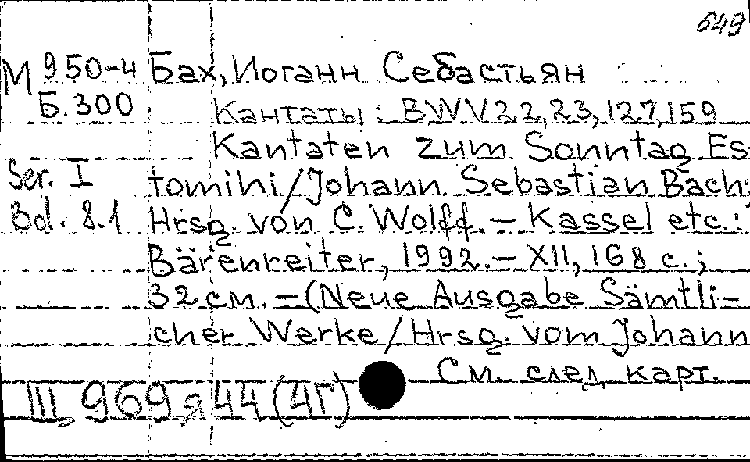 649
М 950-4 Бах, Иоганн Себастьян
Б.300 Кантаты : BWV 22,23,127,159
Kantaten zum Sonntag Es-
Ser. I tomihi/Johann Sebastian Bach;
Bd. 8.1 Hrsg. von C. Wolff. – Kassel etc.:
Bärenreiter, 1992. – XII, 168 с.;
32 см. – (Neue Ausgabe Sämtli-
cher Werke/Hrsg. vom Johann
См. след. карт.
III 969я44(4Г)